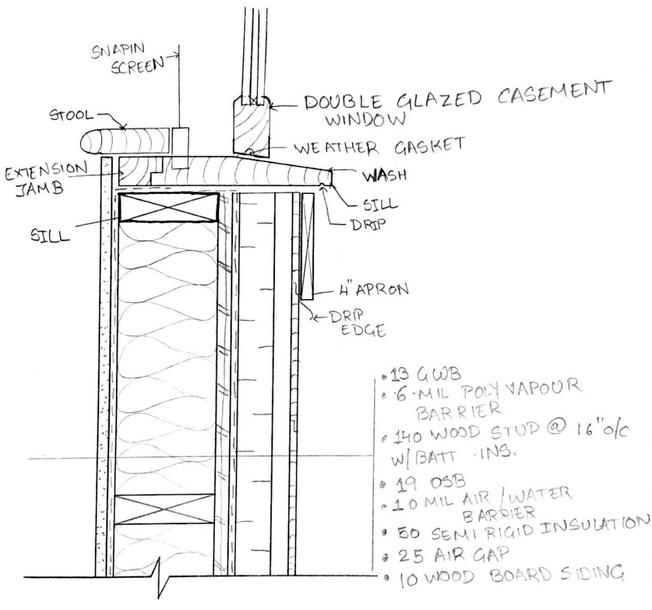 SNAPIN
SCREEN
STOOL
DOUBLE GLAZED CASEMENT
WINDOW
WEATHER GASKET
EXTENSION
JAMB
WASH
SILL
DRIP
SILL
4" APRON
DRIP
EDGE
• 13 GWB
• 6 MIL POLY VAPOUR
BARRIER
• 140 WOOD STUD @ 16" O/C
W/BATT INS.
• 19 OSB
• 10 MIL AIR/WATER
BARRIER
• 50 SEMI RIGID INSULATION
• 25 AIR GAP
• 10 WOOD BOARD SIDING